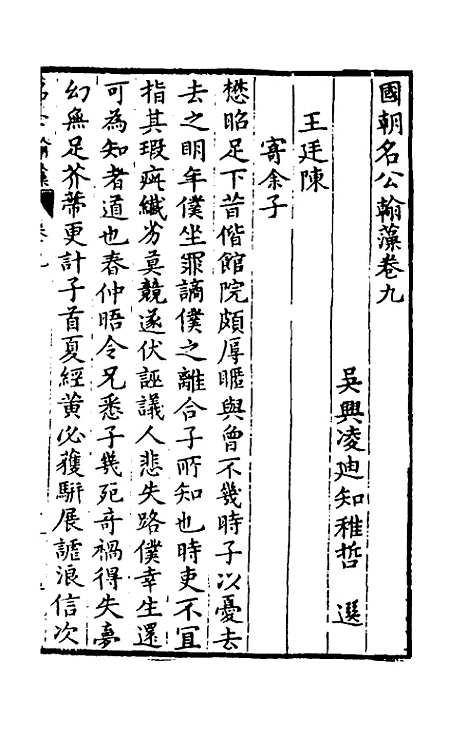 國朝名公翰藻卷九
吳興凌迪知稚哲 選
王廷陳
寄余子
懋昭足下昔偕館院頗辱暱與曾不幾時子以憂去
去之明年僕坐罪謫僕之離合子所知也時吏不宜
指其瑕疵纖劣莫競遂伏誣議人悲失路僕幸生還
可為知者道也春仲晤令兄悉子幾死奇禍得失夢
幻無足芥蔕更計子首夏經黃必獲駢展謔浪信次